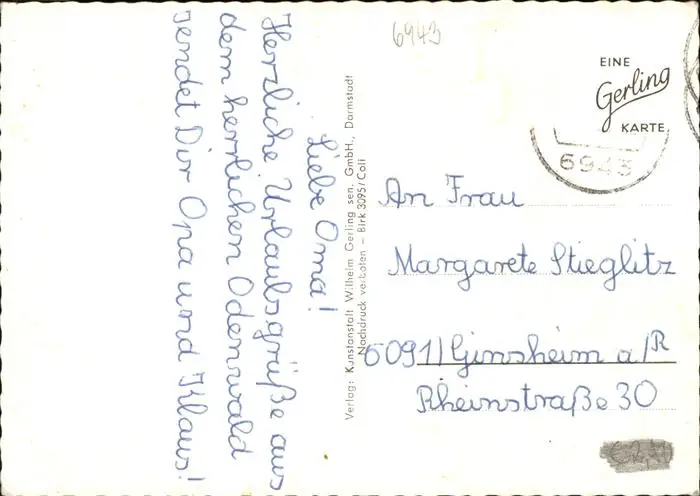 6943
EINE
Gerling
KARTE
6943
Liebe Oma!
Herzliche Urlaubsgrüße aus
dem herrlichen Odenwald
sendet Dir Opa und Klaus!
Verlag: Kunstanstalt Wilhelm Gerling sen. GmbH., Darmstadt
Nachdruck verboten – Birk 3095/Coli
An Frau
Margarete Stieglitz
6091) Ginsheim a/R
Rheinstraße 30